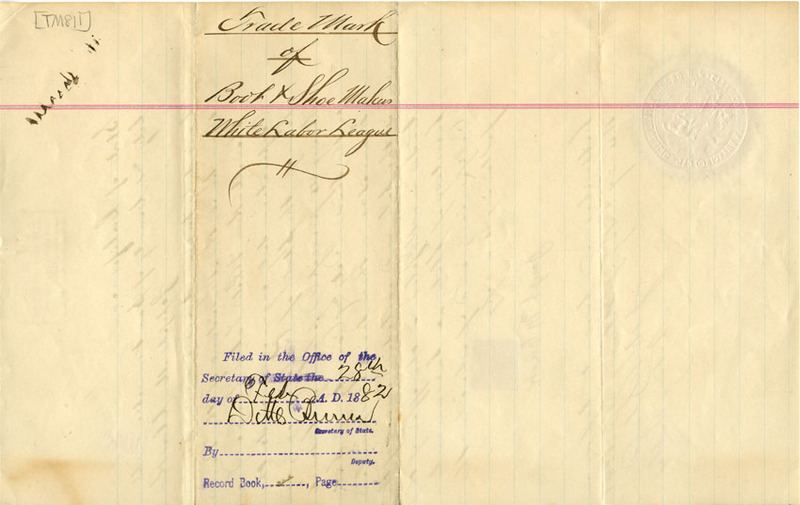 [TM811]
Trade Mark
of
Boot & Shoe Makers
White Labor League
Filed in the Office of the
Secretary of State the 28th
day of Feb A. D. 1882
Secretary of State.
By
Deputy.
Record Book, 2, Page